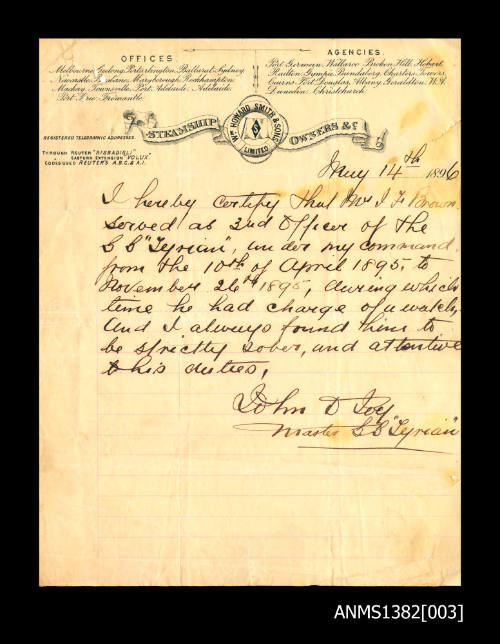 OFFICES
Melbourne, Geelong, Portarlington, Ballarat, Sydney,
Newcastle, Brisbane, Maryborough, Rockhampton,
Mackay, Townsville, Port Adelaide, Adelaide,
Port Pirie, Fremantle.
AGENCIES.
Port Germein, Wallaroo, Broken Hill, Hobart,
Gympie, Bundaberg, Charters Towers,
Cairns, Port Douglas, Albany, Geraldton, W.A
Dunedin, Christchurch.
STEAMSHIP
Wm HOWARD SMITH & SONS
LIMITED
OWNERS &c
REGISTERED TELEGRAPHIC ADDRESSES.
THROUGH REUTER
EASTERN EXTENSION "VOLUX"
CODES USED REUTER'S A.B.C. & A.I.
May 14th 1896
I hereby certify that Mr J F Brown
served as 2nd Officer of the
S S "Tyrian", under my command,
from the 10th of April 1895, to
November 26th 1895, during which
time he had charge of a watch,
And I always found him to
be strictly sober, and attentive
to his duties,
John D Joy
Master S S "Tyrian"
ANMS1382[003]